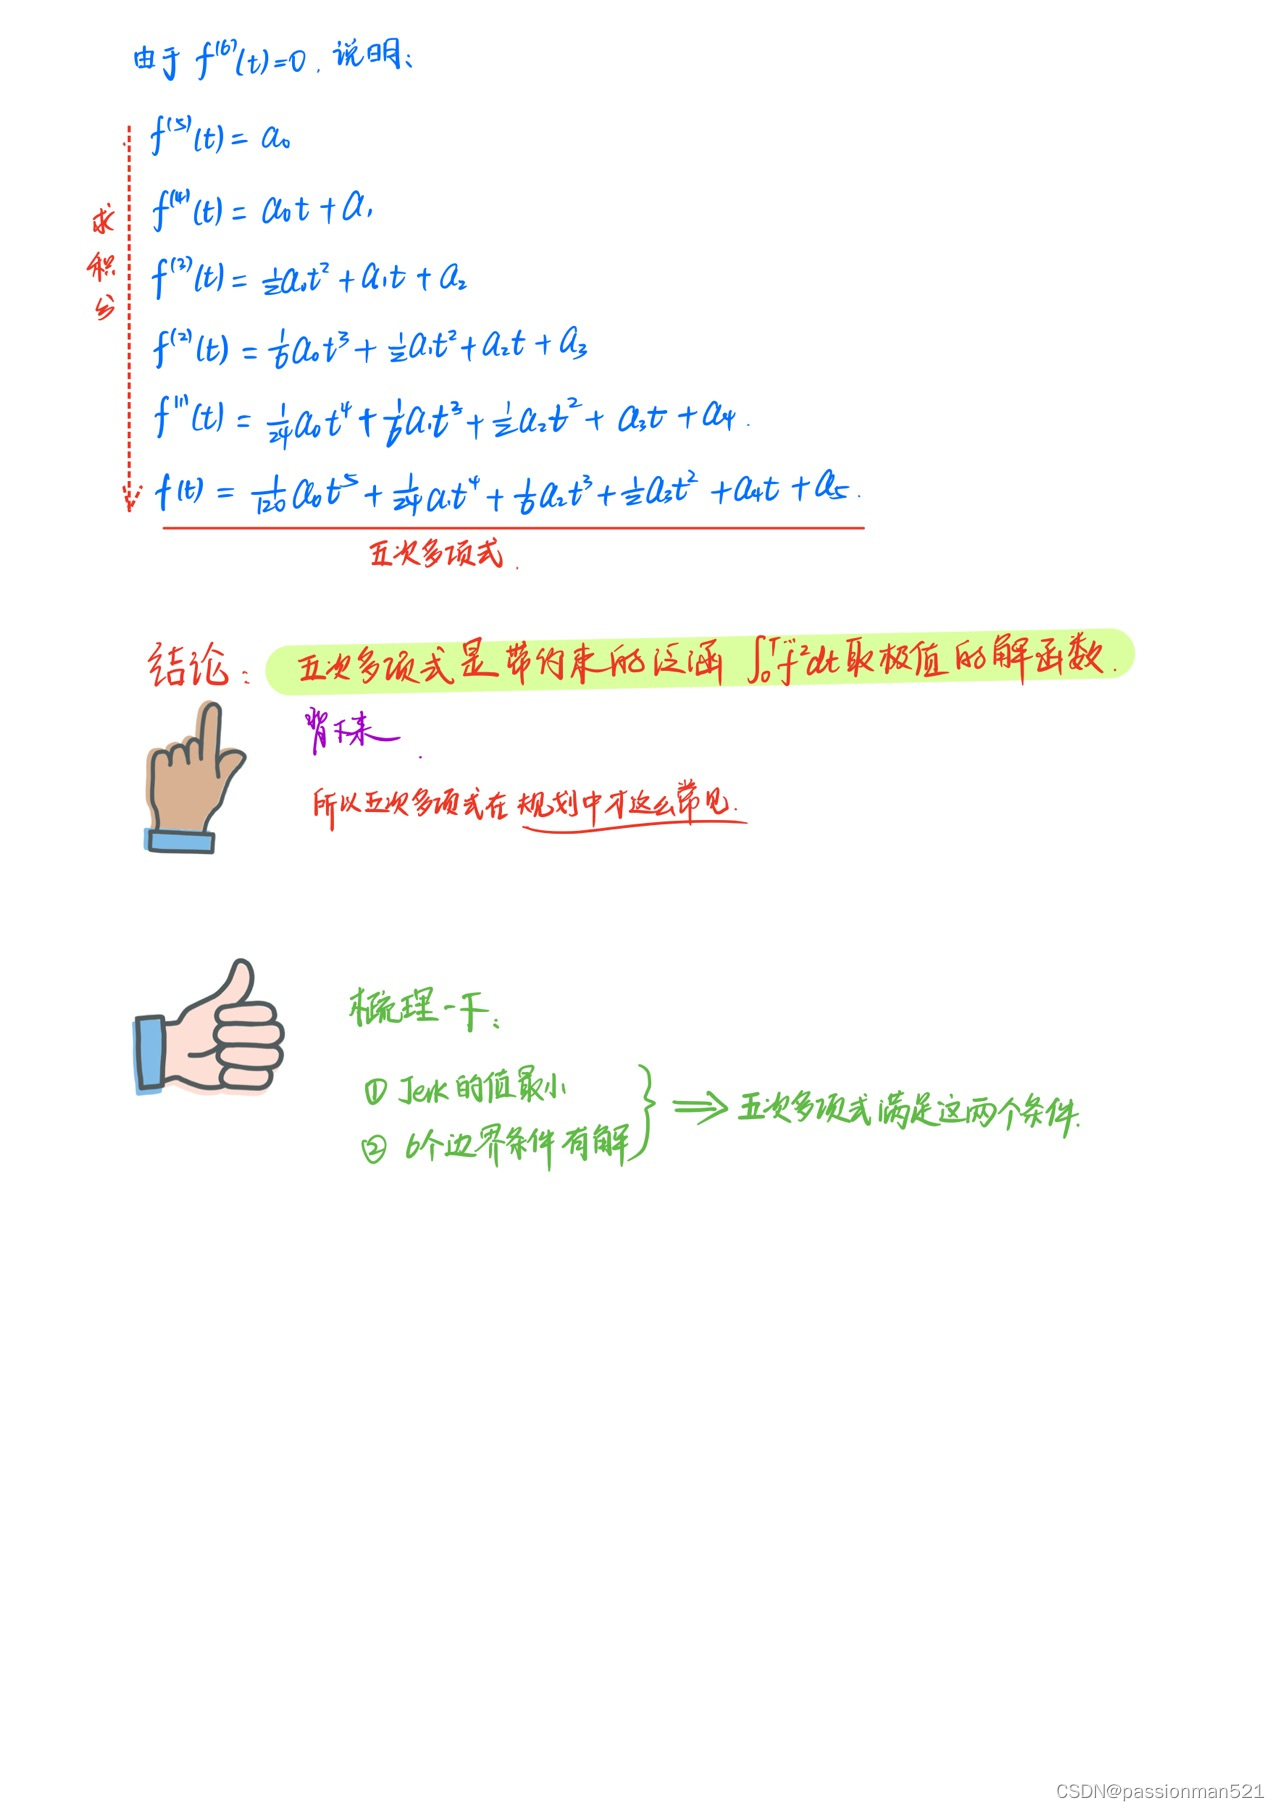 由于 f⁽⁶⁾(t)=0，说明：
f⁽⁵⁾(t) = a₀
f⁽⁴⁾(t) = a₀t + a₁
f⁽³⁾(t) = ½a₀t² + a₁t + a₂
f⁽²⁾(t) = 1/6 a₀t³ + ½a₁t² + a₂t + a₃
f⁽¹⁾(t) = 1/24 a₀t⁴ + 1/6 a₁t³ + ½a₂t² + a₃t + a₄.
f(t) = 1/120 a₀t⁵ + 1/24 a₁t⁴ + 1/6 a₂t³ + ½a₃t² + a₄t + a₅.
求积分
五次多项式.
结论：五次多项式是带约束的泛函 ∫₀ᵀ f⃛² dt 取极值的解函数.
背下来.
所以五次多项式在规划中才这么常见.
梳理一下：
① Jerk的值最小
② 6个边界条件有解
} ⟹ 五次多项式满足这两个条件.
CSDN@passionman521